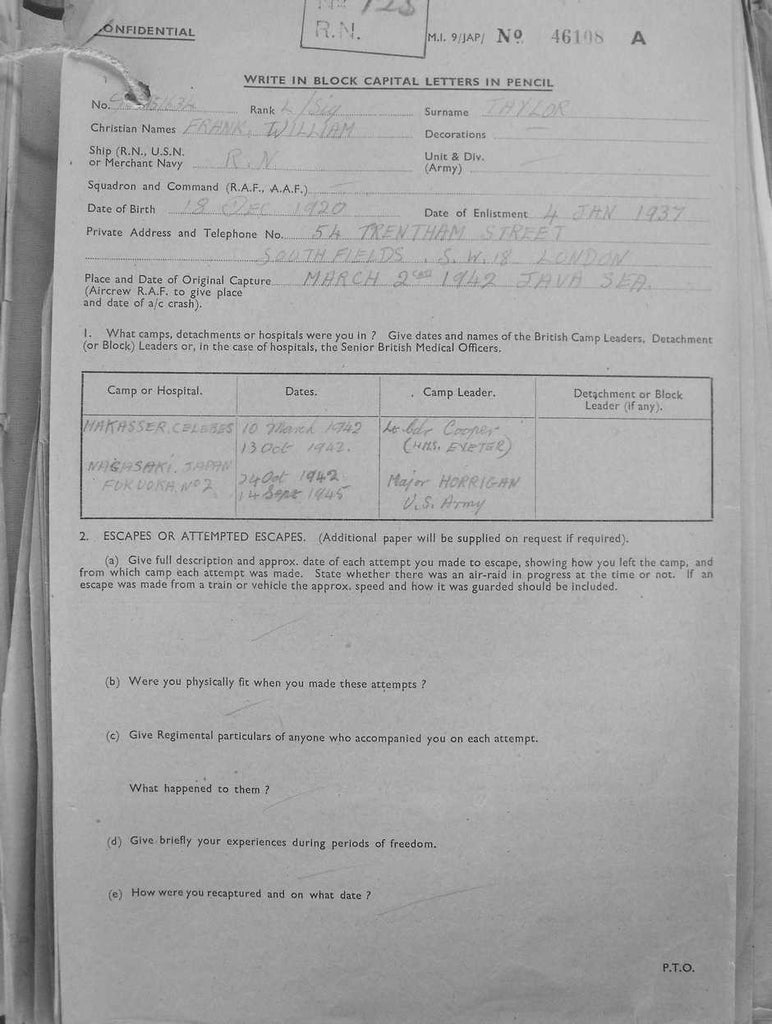 CONFIDENTIAL
R.N.
M.I. 9/JAP/ No 46108 A
WRITE IN BLOCK CAPITAL LETTERS IN PENCIL
No. Rank L/Sig Surname TAYLOR
Christian Names FRANK, WILLIAM Decorations —
Ship (R.N., U.S.N. or Merchant Navy R.N. Unit & Div. (Army) —
Squadron and Command (R.A.F., A.A.F.) —
Date of Birth 18 DEC 1920 Date of Enlistment 4 JAN 1937
Private Address and Telephone No. 54 TRENTHAM STREET
SOUTHFIELDS. S.W.18 LONDON
Place and Date of Original Capture MARCH 2ND 1942 JAVA SEA.
(Aircrew R.A.F. to give place
and date of a/c crash).
1. What camps, detachments or hospitals were you in ? Give dates and names of the British Camp Leaders, Detachment
(or Block) Leaders or, in the case of hospitals, the Senior British Medical Officers.
Camp or Hospital. Dates. Camp Leader. Detachment or Block
Leader (if any).
MAKASSER, CELEBES 10 March 1942 Lt Cdr Cooper
13 Oct 1942. (HMS. EXETER)
NAGASAKI. JAPAN 24 Oct 1942 Major HORRIGAN
FUKUOKA. No 2 14 Sept 1945 U.S. Army
2. ESCAPES OR ATTEMPTED ESCAPES. (Additional paper will be supplied on request if required).
(a) Give full description and approx. date of each attempt you made to escape, showing how you left the camp, and
from which camp each attempt was made. State whether there was an air-raid in progress at the time or not. If an
escape was made from a train or vehicle the approx. speed and how it was guarded should be included.
(b) Were you physically fit when you made these attempts ?
(c) Give Regimental particulars of anyone who accompanied you on each attempt.
What happened to them ?
(d) Give briefly your experiences during periods of freedom.
(e) How were you recaptured and on what date ?
P.T.O.